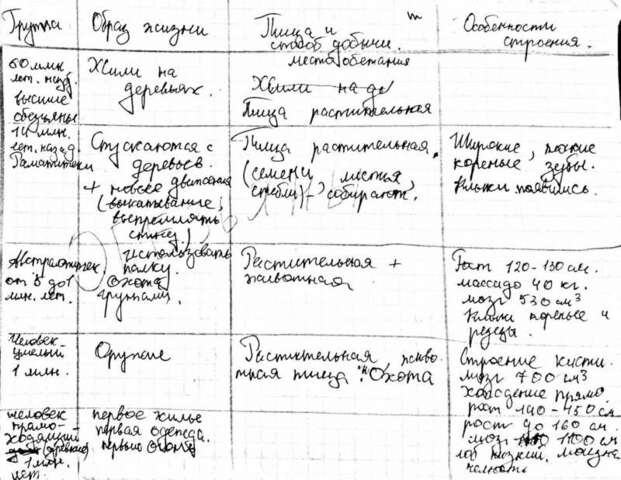 Группа
Образ жизни
Пища и
способ добычи.
места обетания
Особенности
строения.
60 млн
лет. назд.
высшие
обезьяны
Жили на
деревьях.
Пища растительная
14 млн.
лет. назад.
Раматитеки
Спускаются с
деревьев.
+ новое движения
(выкапывание,
выспрямлять
спину)
Пища растительная,
(семени, листья,
стебли) - собирают.
Широкие, плоские
кореные зубы.
Клыки появились.
Австралопитек.
от 5 до 1
млн. лет.
использовать
палку.
Охота
группами.
Растительная +
животная
Рост 120-130 см.
масса до 40 кг.
мозг 530 см³
Клыки
и
резцы.
Человек-
умелый
1 млн.
Орудие
Растительная, живо-
тная пища. Охота
Строение кисти.
мозг 700 см³
хождение прямо.
рост 140-150 см
человек
прямо-
ходящий
(древний)
1 млн.
лет.
первое жилье
первая одежда.
первый огонь
рост до 160 см.
мозг 1100 см
лоб низкий.